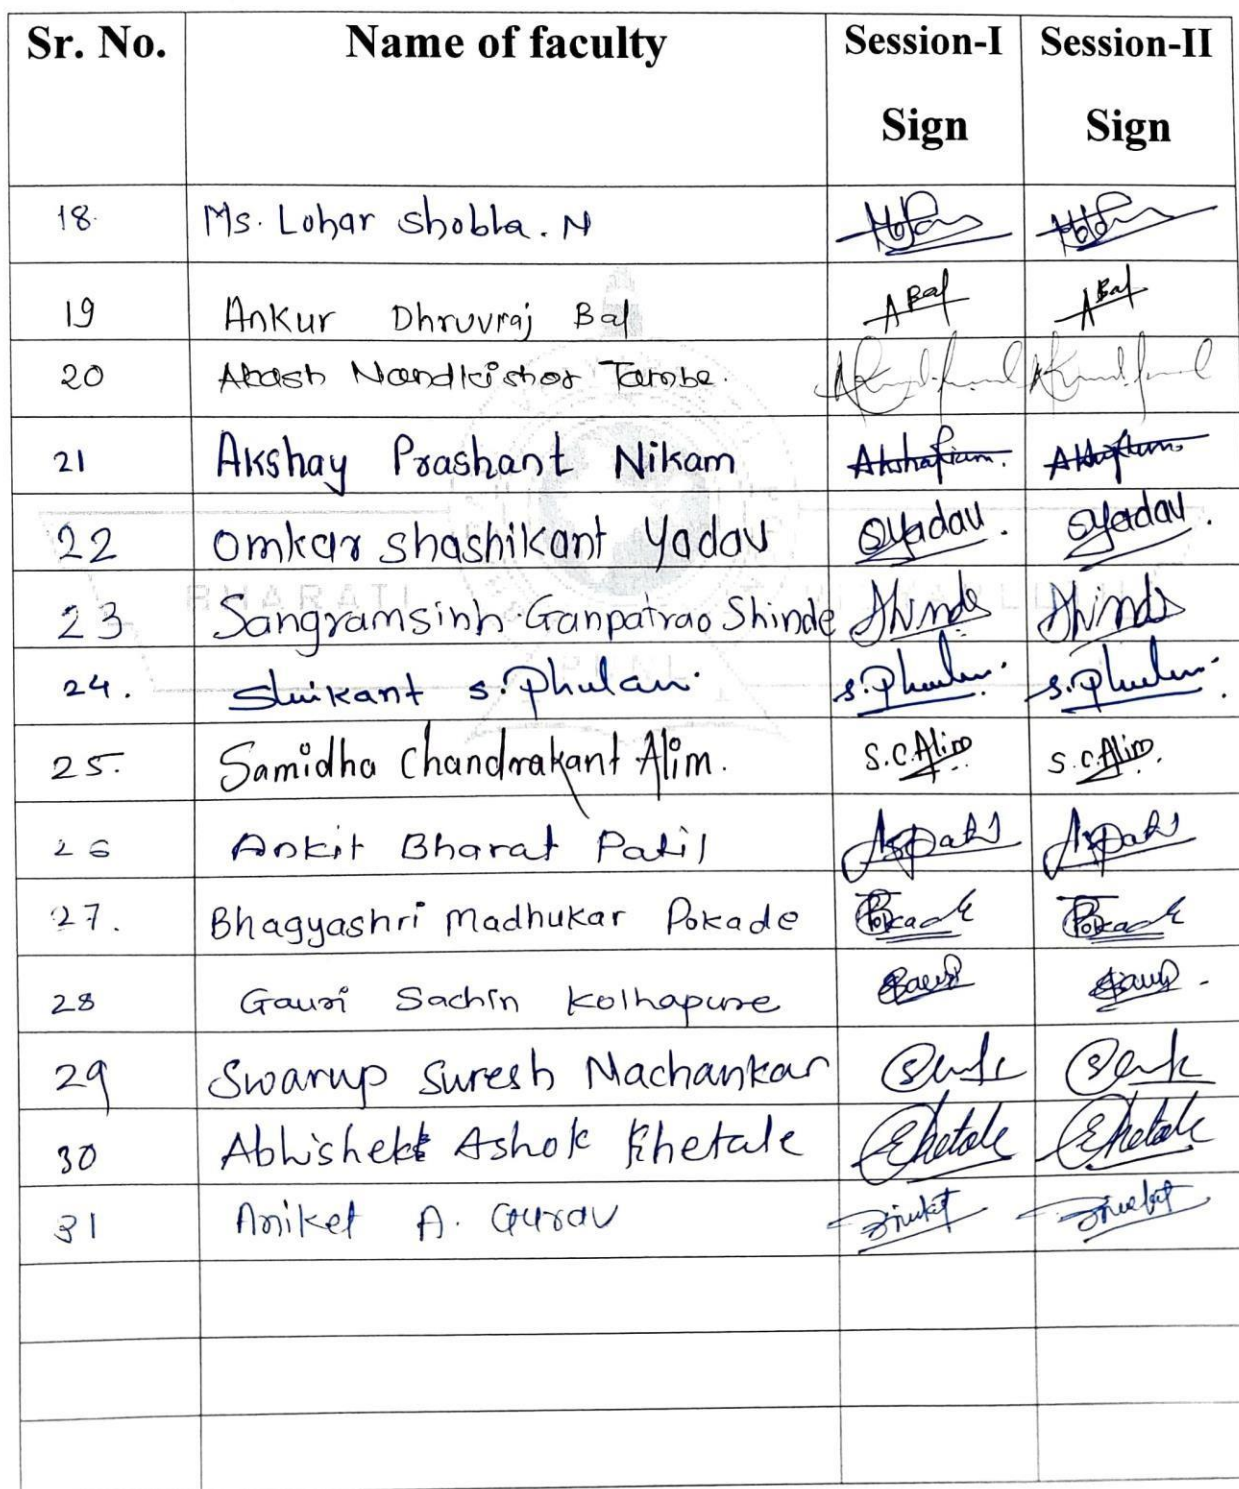 Sr. No. Name of faculty Session-I Sign Session-II Sign
18. Ms. Lohar Shobha. N
19 Ankur Dhruvraj Bal A Bal A Bal
20 Akash Nandkishor Tambe.
21 Akshay Prashant Nikam
22 Omkar Shashikant Yadav OYadav. OYadav.
23 Sangramsinh Ganpatrao Shinde Shinde Shinde
24. Shrikant S. Phulari. S. Phulari. S. Phulari.
25. Samidha Chandrakant Alim. S.C.Alim S.C.Alim.
26 Ankit Bharat Patil
27. Bhagyashri Madhukar Pokade Pokade Pokade
28 Gauri Sachin Kolhapure Gauri Gauri
29 Swarup Suresh Machankar
30 Abhishek Ashok Khetale Khetale Khetale
31 Aniket A. Gurav Aniket Aniket
BHARATI